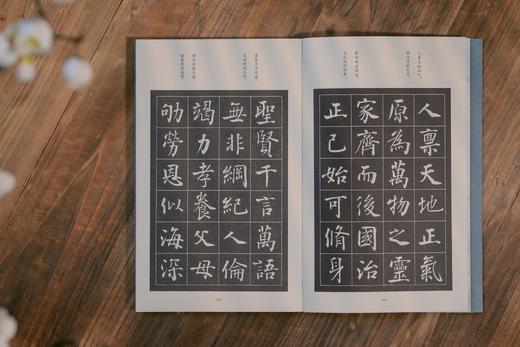 人稟天地正氣
原為萬物之靈
家齊而後國治
正己始可脩身
聖賢千言萬語
無非綱紀人倫
竭力孝養父母
劬勞恩似海深